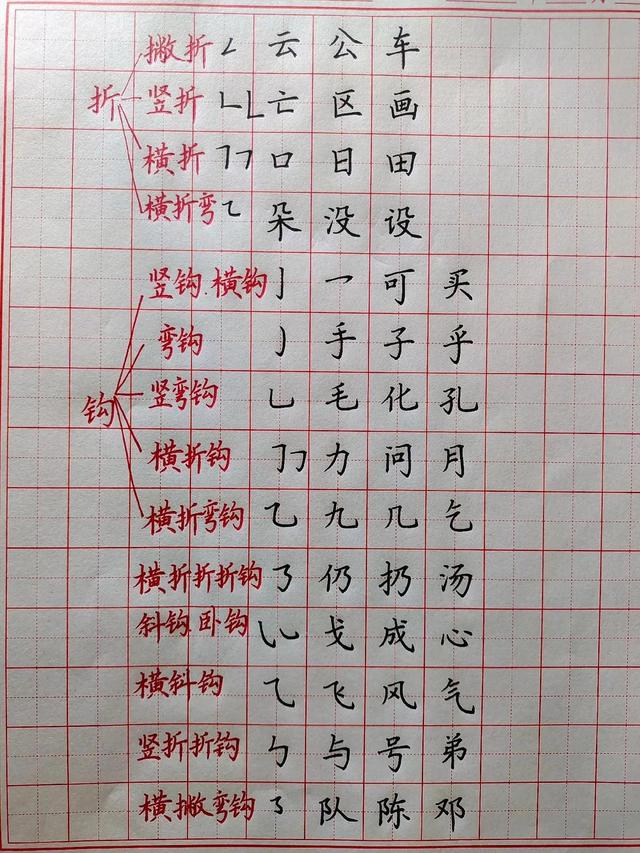 撇折 𠃋 云 公 车
折 竖折 𠃊𠃊 亡 区 画
横折 𠃍𠃍 口 日 田
横折弯 ㇍ 朵 没 设
竖钩.横钩 亅 乛 可 买
弯钩 ㇁ 手 子 乎
钩 竖弯钩 乚 毛 化 孔
横折钩 𠃌𠃌 力 问 月
横折弯钩 乙 九 几 乞
横折折折钩 ㇡ 仍 扔 汤
斜钩.卧钩 ㇂㇃ 戈 成 心
横斜钩 ⺄ 飞 风 气
竖折折钩 ㇉ 与 号 弟
横撇弯钩 ㇌ 队 陈 邓